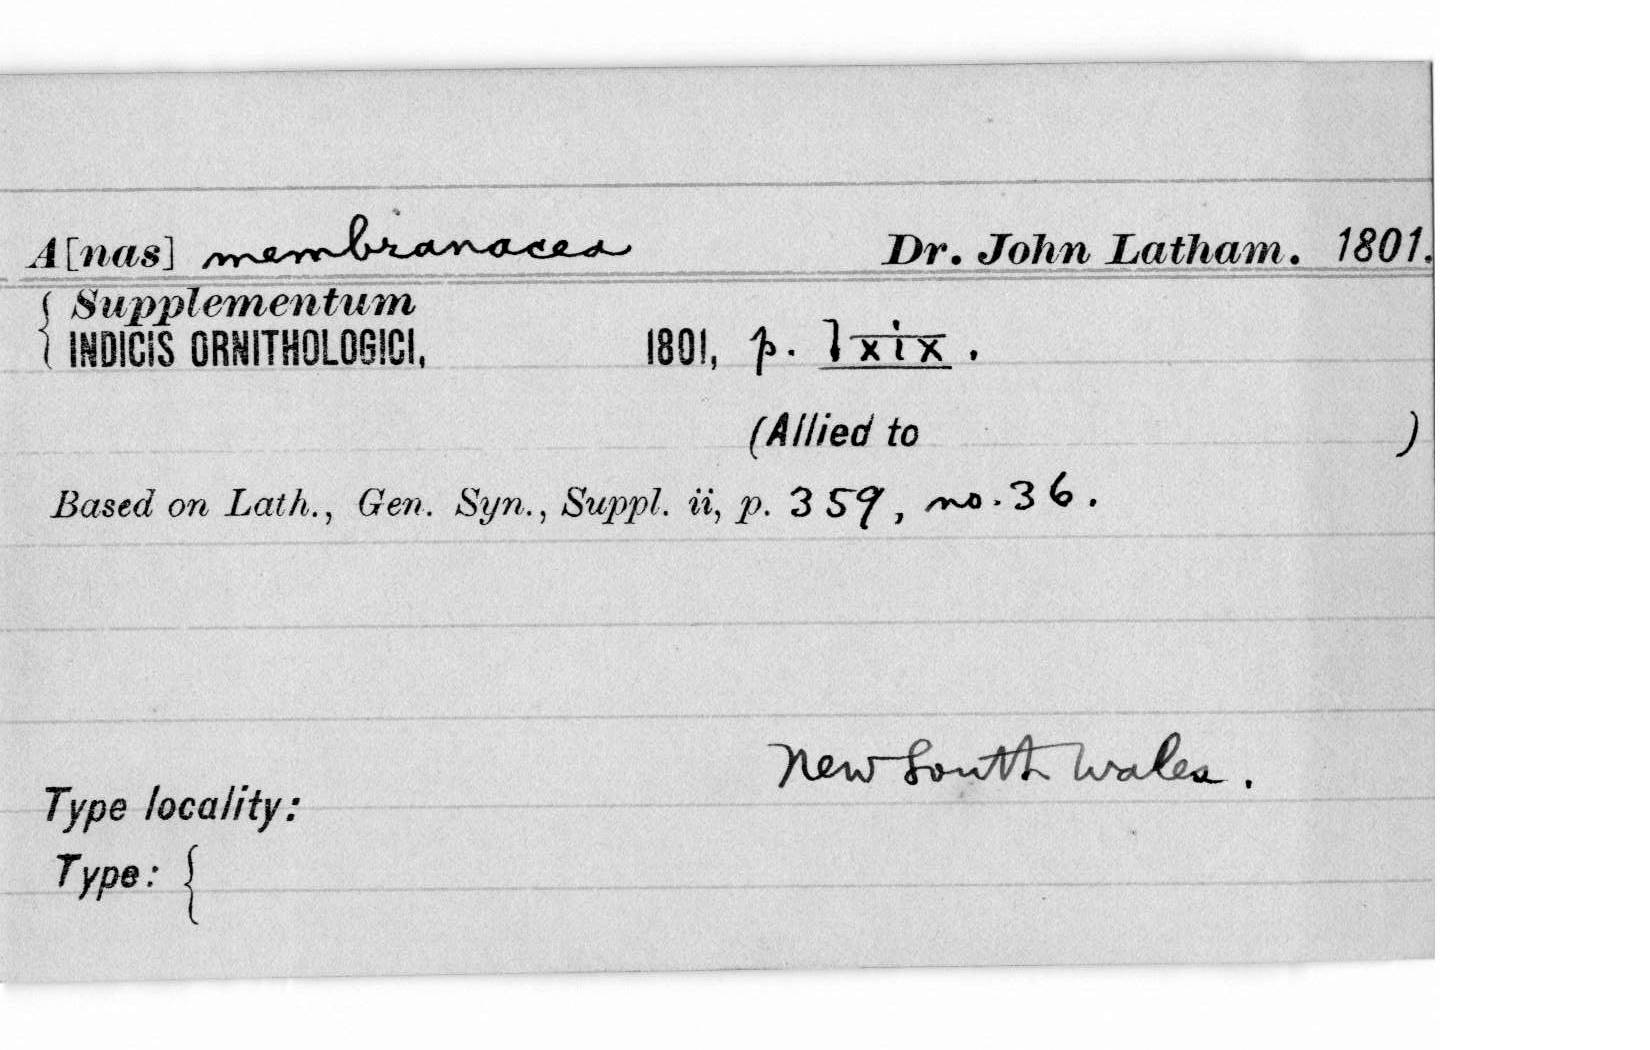 A[nas] membranacea Dr. John Latham. 1801.
{ Supplementum
INDICIS ORNITHOLOGICI, 1801, p. lxix.
(Allied to )
Based on Lath., Gen. Syn., Suppl. ii, p. 359, no. 36.
New South Wales.
Type locality:
Type: {